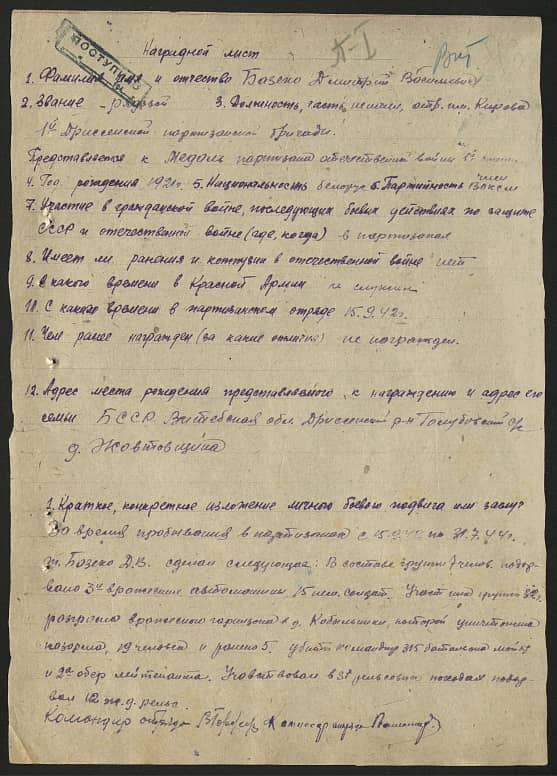 ПОСТУПИЛО
Наградной лист
1. Фамилия имя и отчество Базеко Дмитрий Васильевич
2. Звание – рядовой 3. Должность, часть, отр. им. Кирова
1й Дриссенской партизанской бригады.
Представляется к Медаль партизана отечественной войны
4. Год рождения 1921г. 5. Национальность белорус 6. Партийность член ВЛКСМ
7. Участие в гражданской войне, последующих боевых действиях по защите
СССР и отечественной войне (где, когда) в партизанах
8. Имеет ли ранения и контузии в отечественной войне нет
9. С какого времени в Красной Армии не служил
10. С какого времени в партизанском отряде 15.9.42г.
11. Чем ранее награжден (за какие отличия) не награжден.
12. Адрес места рождения представляемого к награждению и адрес его
семьи БССР. Витебская обл. Дриссенский р-н Голубовский с/с
д. Жавтовщина
1. Краткое, конкретное изложение личного боевого подвига или заслуг
За время пребывания в партизанах с 15.9. по 31.7.44г.
Базеко Д.В. сделал следующее: В составе группы 7 челов. подор-
вано 3и вражеских автомашины 15 нем. солдат.
разгрома вражеского гарнизона в д. Кобыльники, который уничтожила
19 человек и ранено 5. убит командир 315 батальона майор
и 2а обер лейтенанта. Участвовал в 3х рельсовых походах подор-
вал 12 ж.д. рельс.
Командир отряда Комиссар отряда